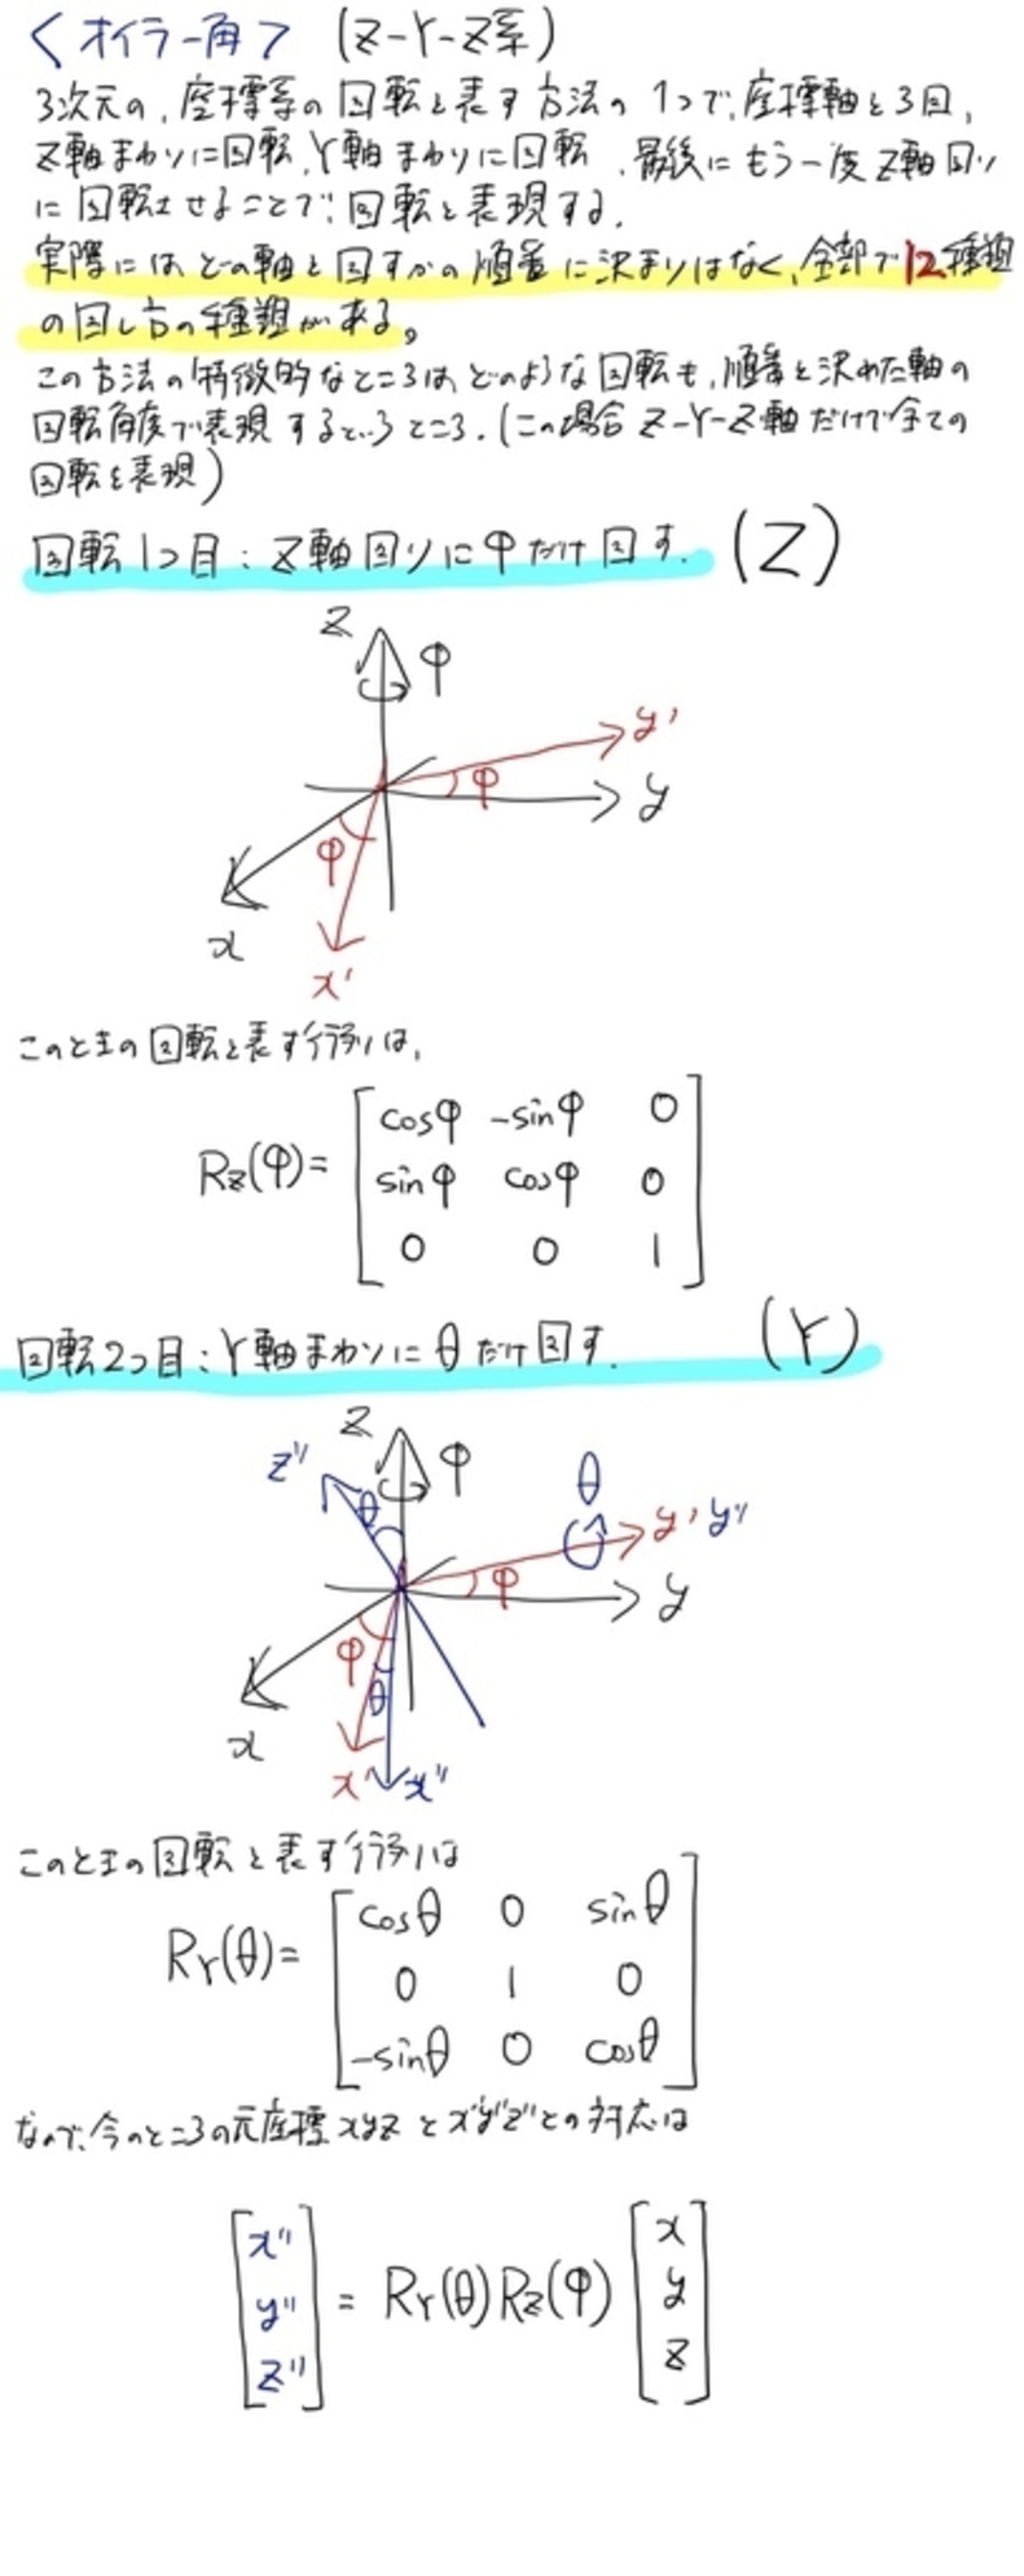 <オイラー角> (Z-Y-Z系)
3次元の、座標系の回転を表す方法の1つで、座標軸を3回、
Z軸まわりに回転、Y軸まわりに回転、最後にもう一度Z軸回り
に回転させることで、回転を表現する。
実際には、どの軸を回すかの順番に決まりはなく、全部で12種類
の回し方の種類がある。
この方法の特徴的なところは、どのような回転も、順番を決めた軸の
回転角度で表現するというところ。(この場合Z-Y-Z軸だけで全ての
回転を表現)
回転1つ目:Z軸回りにφだけ回す. (Z)
z φ
y'
φ
y
φ
x
x'
このときの回転を表す行列は、
Rz(φ)=
cosφ -sinφ 0
sinφ cosφ 0
0 0 1
回転2つ目:Y軸まわりにθだけ回す. (Y)
z φ
z'' θ θ
y' y''
φ
y
φ
θ
x
x' x''
このときの回転を表す行列は
RY(θ)=
cosθ 0 sinθ
0 1 0
-sinθ 0 cosθ
なので、今のところの元座標xyzとx''y''z''との対応は
x'' x
y'' = RY(θ)Rz(φ) y
z'' z